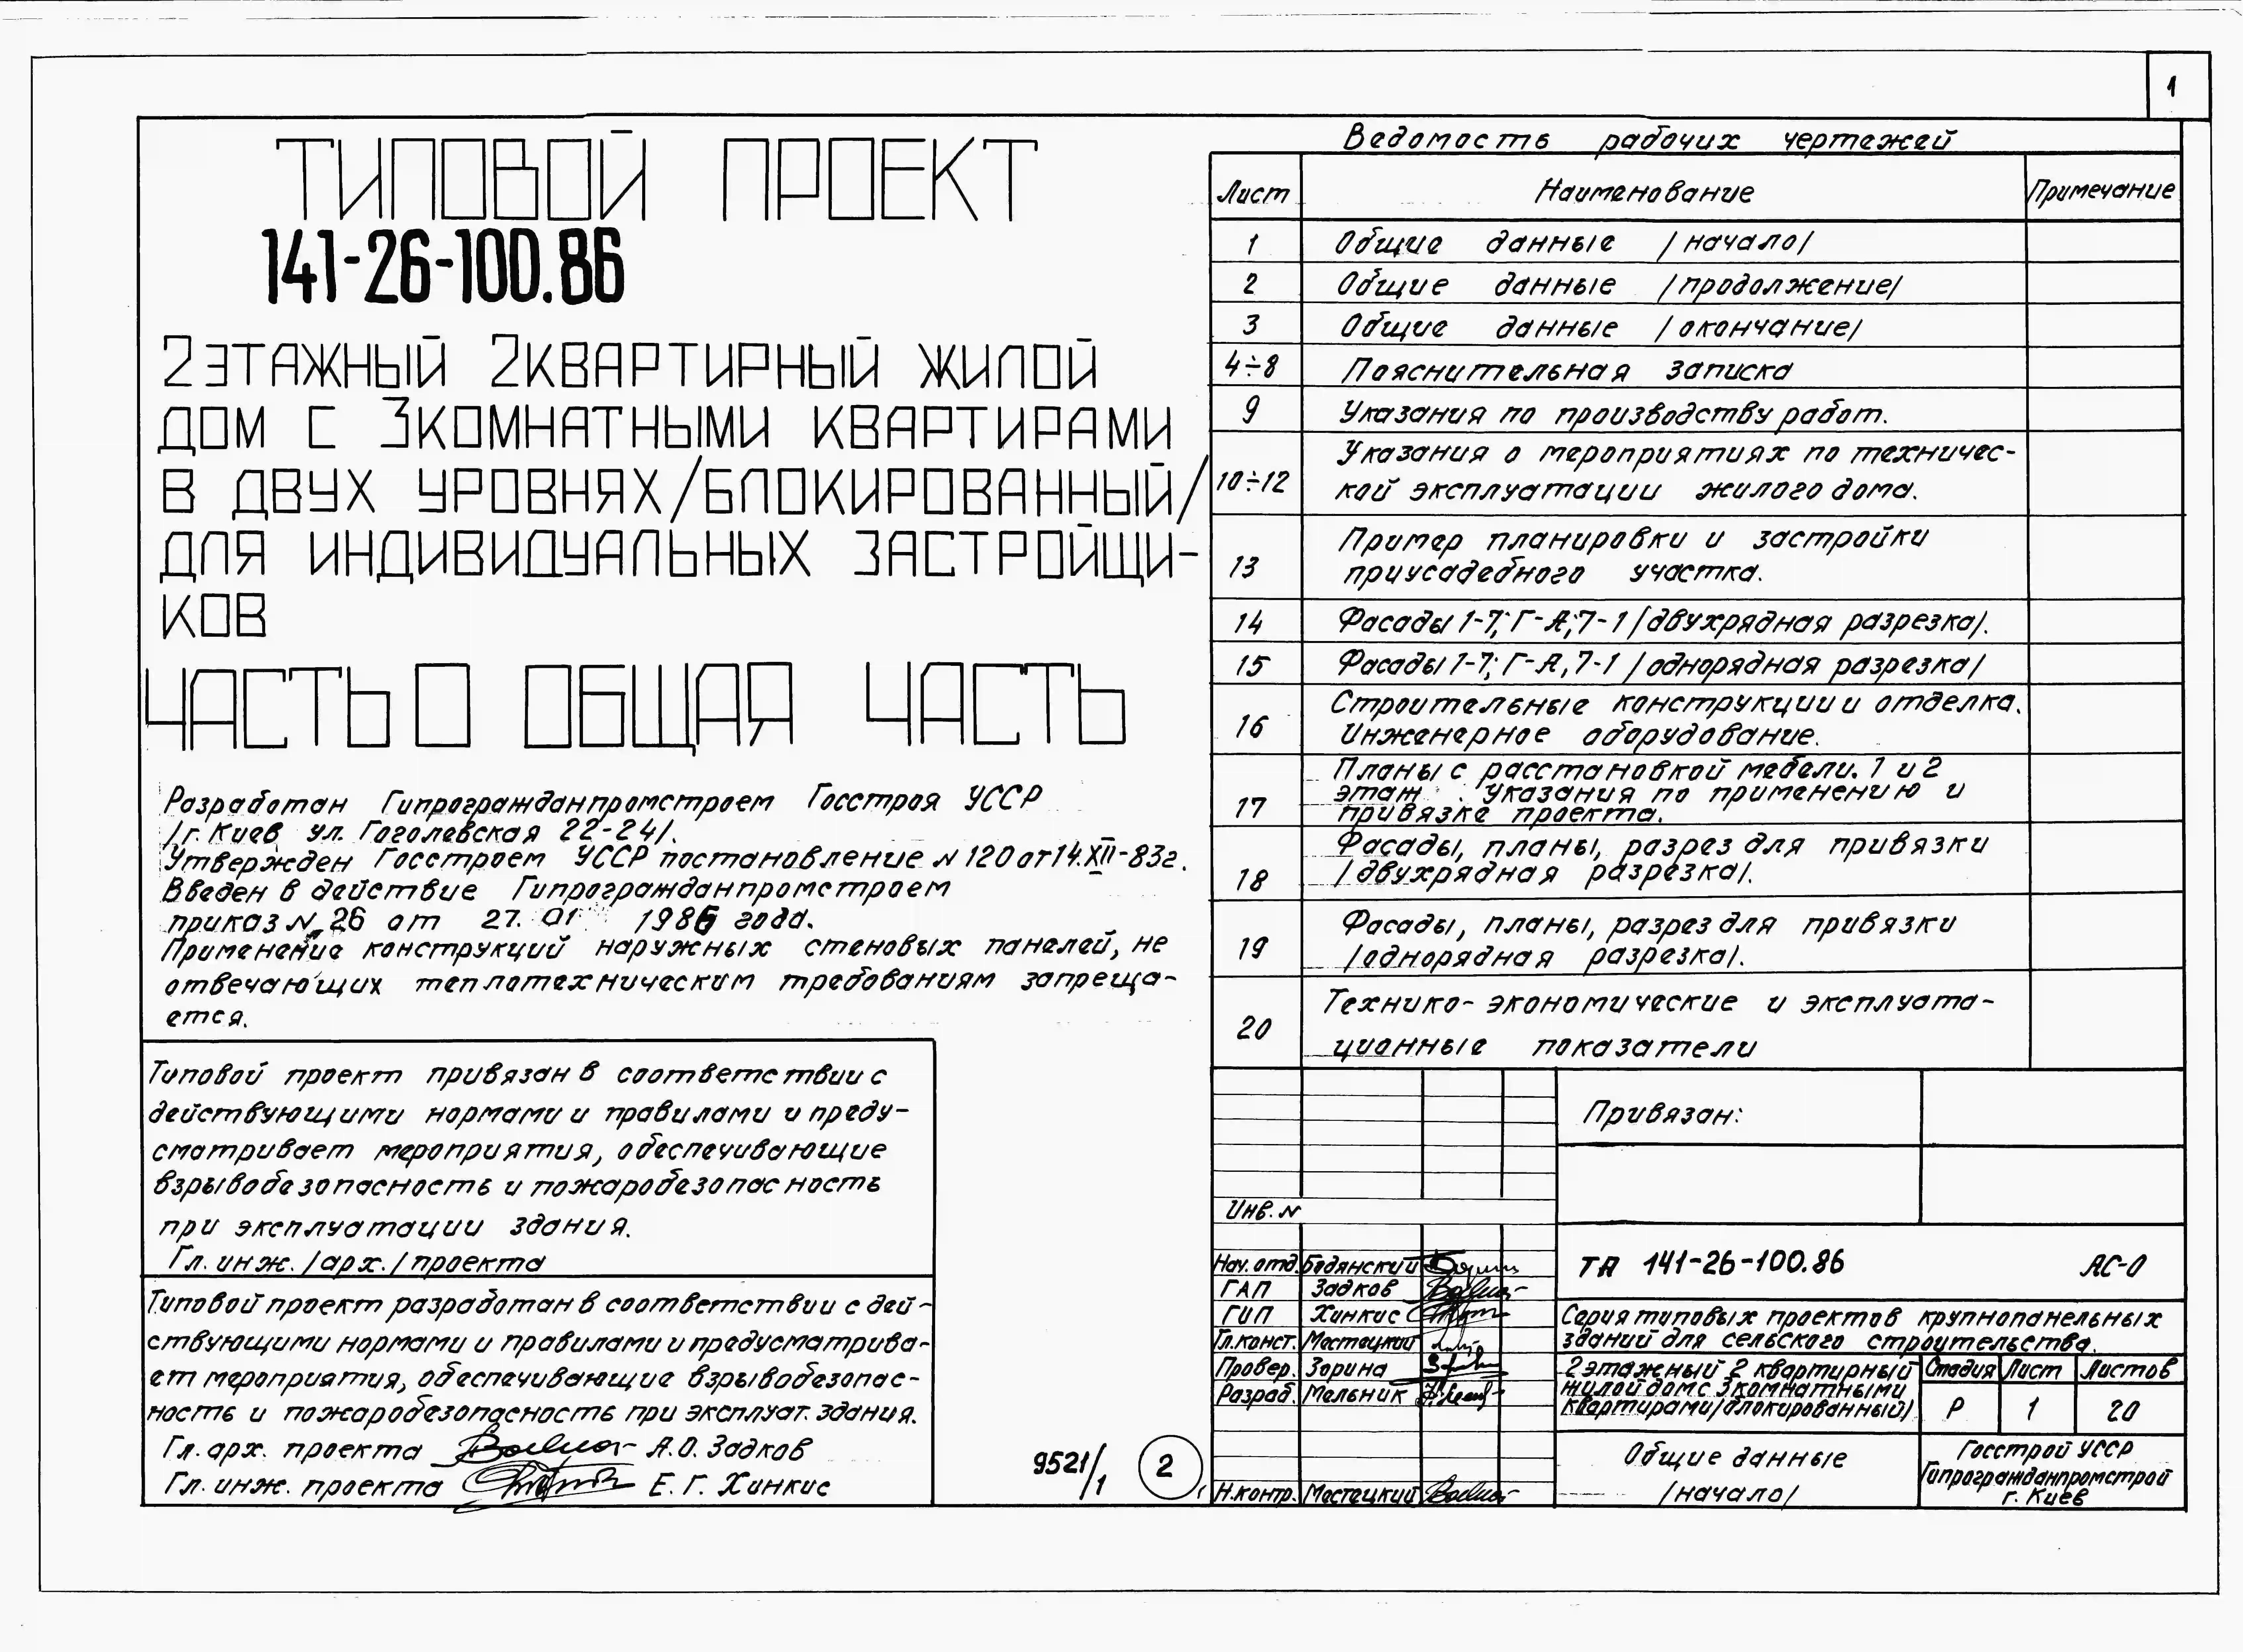 1
ТИПОВОЙ ПРОЕКТ
141-26-100.86
2ЭТАЖНЫЙ 2КВАРТИРНЫЙ ЖИЛОЙ
ДОМ С 3КОМНАТНЫМИ КВАРТИРАМИ
В ДВУХ УРОВНЯХ/БЛОКИРОВАННЫЙ/
ДЛЯ ИНДИВИДУАЛЬНЫХ ЗАСТРОЙЩИ-
КОВ
ЧАСТЬ 0 ОБЩАЯ ЧАСТЬ
Разработан Гипрогражданпромстроем Госстроя УССР
/г. Киев ул. Гоголевская 22-24/.
Утвержден Госстроем УССР постановление N 120 от 14.XII-83г.
Введен в действие Гипрогражданпромстроем
приказ N 26 от 27. 01 1986 года.
Применение конструкций наружных стеновых панелей, не
отвечающих теплотехническим требованиям запреща-
ется.
Типовой проект привязан в соответствии с
действующими нормами и правилами и преду-
сматривает мероприятия, обеспечивающие
взрывобезопасность и пожаробезопасность
при эксплуатации здания.
Гл. инж. /арх./ проекта
Типовой проект разработан в соответствии с дей-
ствующими нормами и правилами и предусматрива-
ет мероприятия, обеспечивающие взрывобезопас-
ность и пожаробезопасность при эксплуат. здания.
Гл. арх. проекта А.О. Задков
Гл. инж. проекта Е. Г. Хинкис
9521/1 2
Ведомость рабочих чертежей
Лист Наименование Примечание
1 Общие данные /начало/
2 Общие данные /продолжение/
3 Общие данные /окончание/
4÷8 Пояснительная записка
9 Указания по производству работ.
10÷12 Указания о мероприятиях по техничес-
кой эксплуатации жилого дома.
13 Пример планировки и застройки
приусадебного участка.
14 Фасады 1-7; Г-А; 7-1 /двухрядная разрезка/.
15 Фасады 1-7; Г-А, 7-1 /однорядная разрезка/
16 Строительные конструкции и отделка.
Инженерное оборудование.
17 Планы с расстановкой мебели. 1 и 2
этаж. Указания по применению и
привязке проекта.
18 Фасады, планы, разрез для привязки
/двухрядная разрезка/.
19 Фасады, планы, разрез для привязки
/однорядная разрезка/.
20 Технико-экономические и эксплуата-
ционные показатели
Привязан:
Инв. N
Нач. отд. Бодянский
ГАП Задков
ГИП Хинкис
Гл. конст. Местецкий
Провер. Зорина
Разраб. Мельник
Н. контр. Местецкий
ТП 141-26-100.86 АС-0
Серия типовых проектов крупнопанельных
зданий для сельского строительства.
2 этажный 2 квартирный
жилой дом с 3 комнатными
квартирами/блокированный/
Стадия Лист Листов
Р 1 20
Общие данные
/начало/
Госстрой УССР
Гипрогражданпромстрой
г. Киев